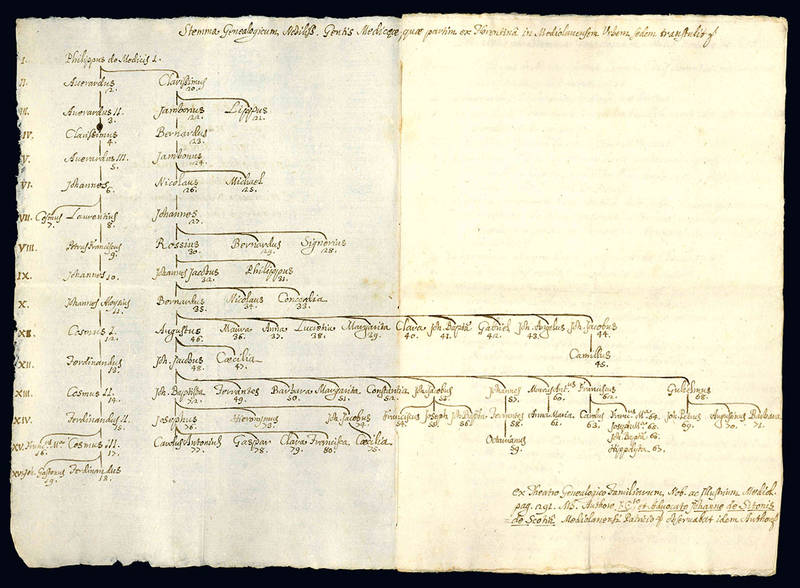 Stemma Genealogicum Nobiliss. Gentis Mediceæ, quæ partim ex Florentia in Mediolanensem Urbem sedem transtulit
I. Philippus de Medicis 1.
II. Averardus 2. Clarissimus 20.
III. Averardus II. 3. Jambonus 22. Lippus 21.
IV. Clarissimus 4. Bernardus 23.
V. Averardus III. 5. Jambonus 24.
VI. Johannes 6. Nicolaus 26. Michael 25.
VII. Cosmus 7. Laurentius 8. Johannes 27.
VIII. Petrus Franciscus 9. Rossius 30. Bernardus 29. Signorius 28.
IX. Johannes 10. Johannes Jacobus 32. Philippus 31.
X. Johannes Aloysius 11. Bernardus 35. Nicolaus 34. Concordia 33.
XI. Cosmus I. 12. Augustus 46. Maura 36. Anna 37. Lucretia 38. Margarita 39. Clara 40. Joh. Baptā 41. Gabriel 42. Joh. Angelus 43. Joh. Jacobus 44.
Camillus 45.
XII. Ferdinandus 13. Joh. Jacobus 48. Cæcilia 47.
XIII. Cosmus II. 14. Joh. Baptista 72. Ferrantes 49. Barbara 50. Margarita 51. Constantia 52. Joh. Jacobus 53. Johannes 57. Franciscus 62. Gulielmus 68.
XIV. Ferdinandus II. Josephus 76. Hieronimus 73. Joh. Jacobus 74. Franciscus 54. Joseph 55. Joh. Baptā 56. Ferrantes 58. Anna Maria 61. Carolus 63. 64. Joh. Petrus 69. Augustinus 70. Barbara 71.
Joseph M.ª 65.
Joh. Baptā 66.
Hippolyta 67.
XV. 16. Cosmus III. 17. Carolus Antonius 77. Gaspar 78. Clara Francisca 79. 80. Cæcilia 75. Octavianus 59.
XVI. Joh. Gastonus 19. Ferdinandus 18.
ex Theatro Genealogico Familiarum Nob. ac Illustrium Mediol.
pag. 1292. Ms. Authore J.C.to et Advocato Johanne de Sitonis
de Scotia Mediolanensi Patricio asservabat idem Author